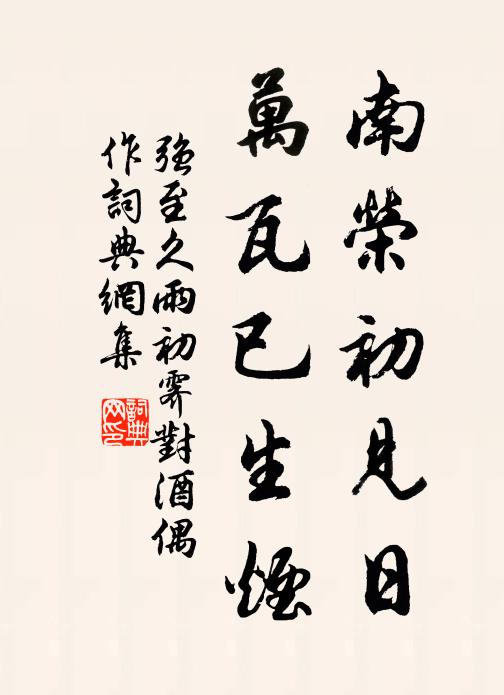 南榮初見日
萬瓦已生煙
強至久雨初霽對酒偶
作詞典網集
詞典
网印